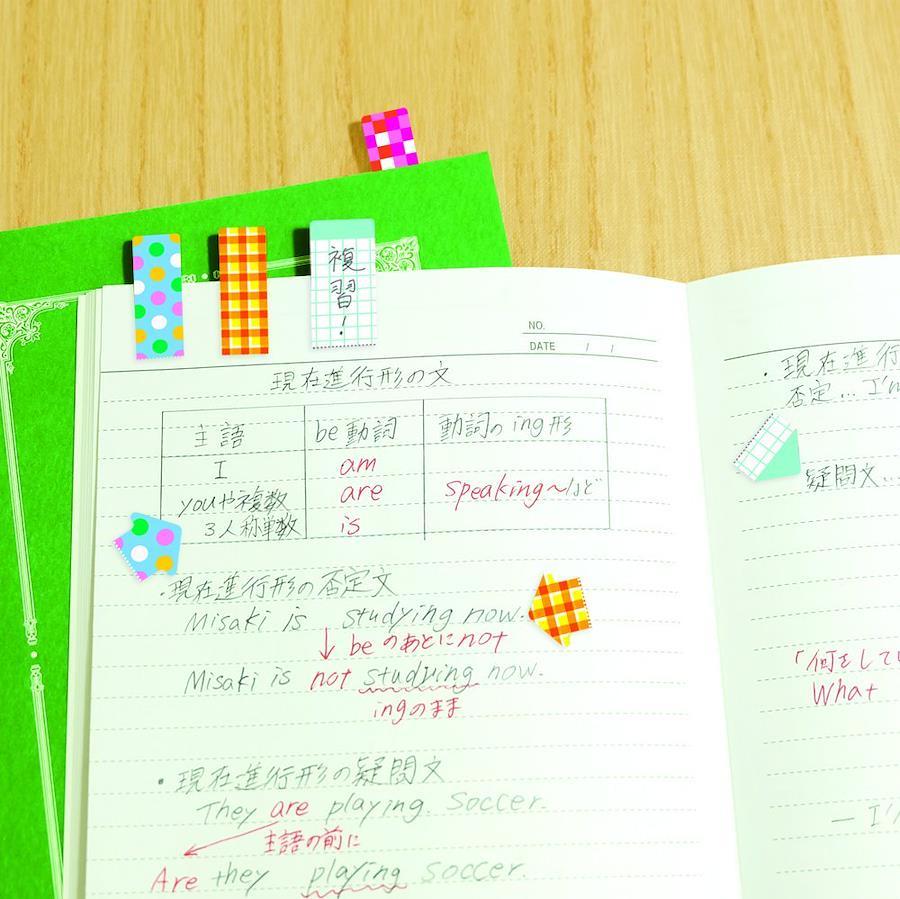 複習!
NO.
DATE / /
現在進行形の文
主語 be動詞 動詞のing形
I am
youや複数 are speaking~など
3人称単数 is
・現在進行形の否定文
Misaki is studying now.
↓ beのあとにnot
Misaki is not studying now.
ingのまま
・現在進行形の疑問文
They are playing. Soccer.
主語の前に
Are they playing soccer.
・現在進行
否定... I'm
疑問文...
「何をしてい
What
— I'